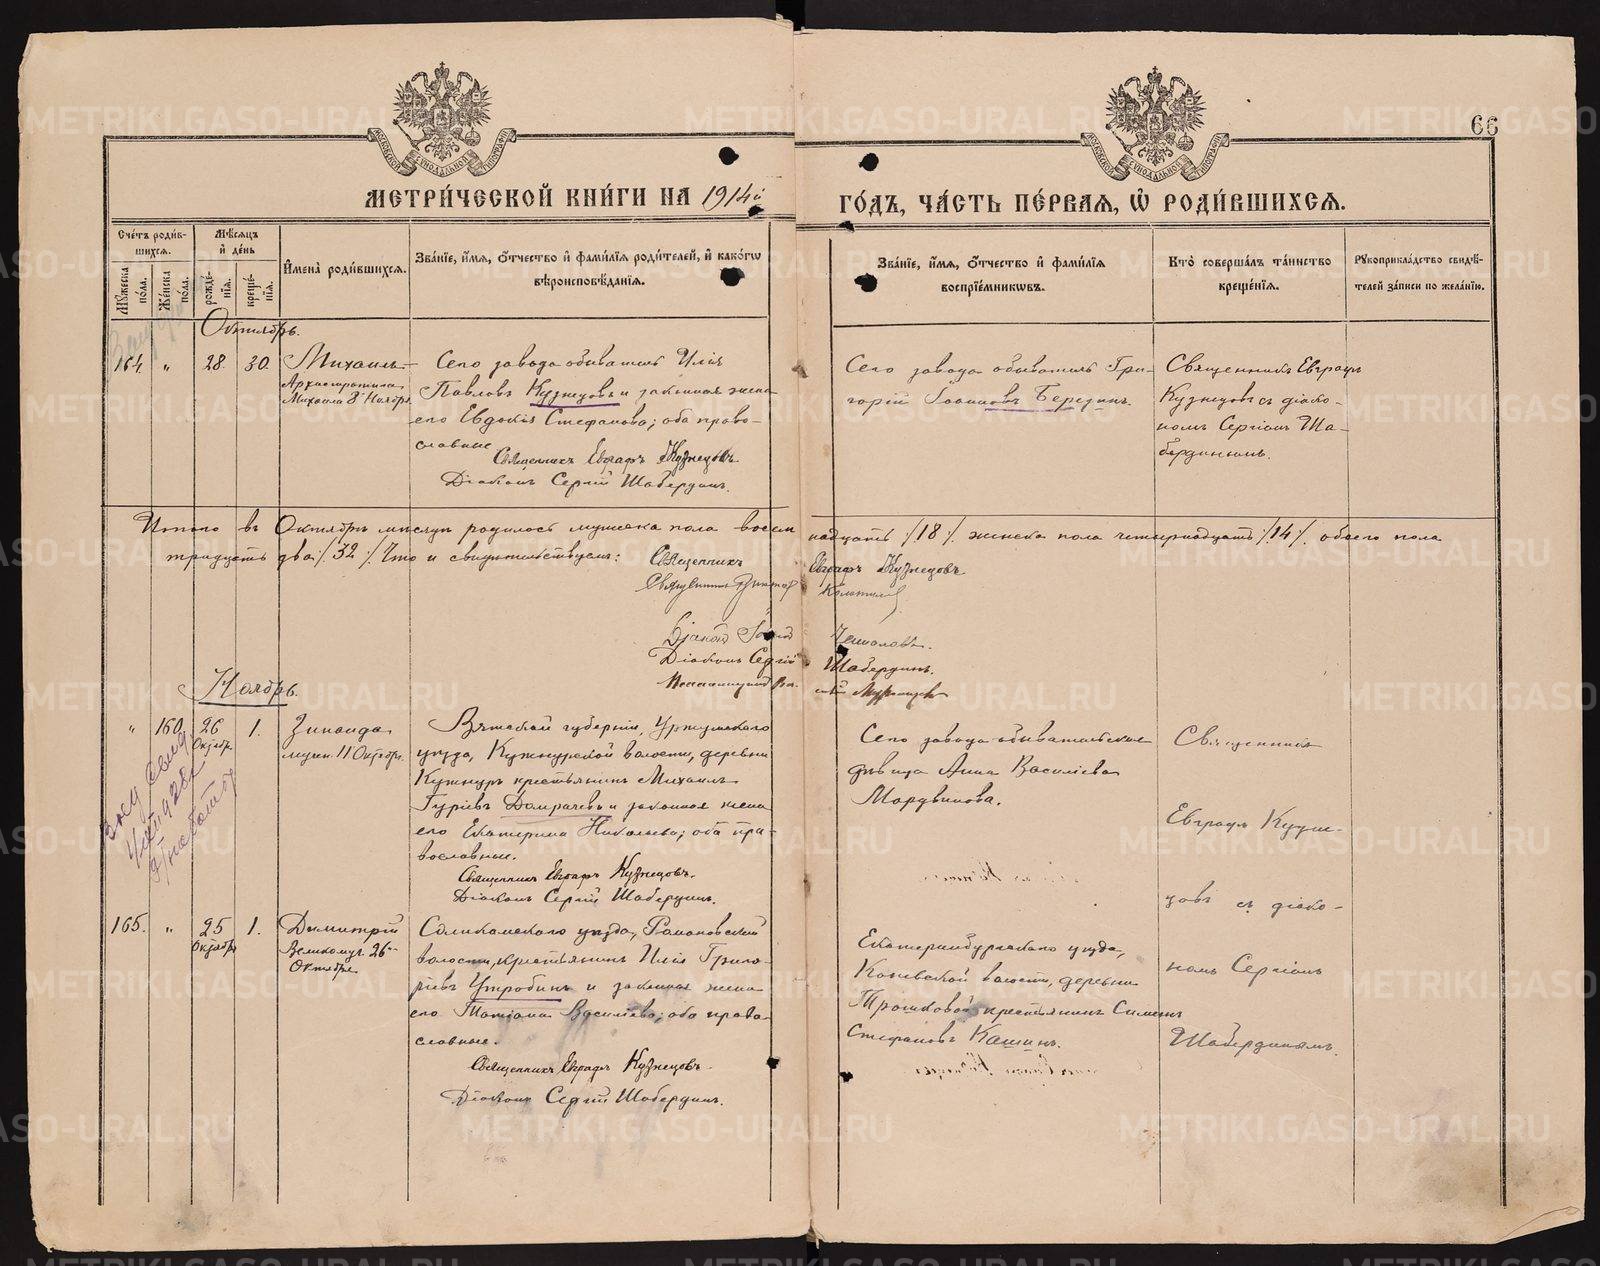 66
МОСКОВСКОЙ СѴНОДАЛЬНОЙ ТИПОГРАФІИ
МОСКОВСКОЙ СѴНОДАЛЬНОЙ ТИПОГРАФІИ
МЕТРИ́ЧЕСКОЙ КНИ́ГИ НА 1914й
ГО́ДЪ, ЧА́СТЬ ПЕ́РВАЯ, Ѽ РОДИ́ВШИХСЯ.
Сче́тъ роди́в-
шихся.
Мѣ́сяцъ
и҆ де́нь
Му́жеска
по́ла.
Же́нска
по́ла.
рожде́-
нїя.
креще́-
нїя.
И҆мена̀ роди́вшихся.
Зва́нїе, и҆́мя, ѻ҆́тчество и҆ фами́лїя роди́телей, и҆ како́гѡ
вѣроисповѣ́данїя.
Зва́нїе, и҆́мя, ѻ҆́тчество и҆ фами́лїя
воспрїе́мникѡвъ.
Кто̀ соверша́лъ та́инство
креще́нїя.
Рꙋкоприкла́дство свидѣ́-
телей за́писи по жела́нїю.
Октябрь.
164. " 28. 30. Михаилъ
Архистратига
Михаила 8 Ноября.
Сего завода обыватель Илія
Павловъ Кузнецовъ и законная жена
его Евдокія Стефанова; оба право-
славные
Священникъ Евграфъ Кузнецовъ
Діаконъ Сергій Шабердинъ.
Сего завода обыватель Гри-
горій Іоанновъ Березинъ.
Священникъ Евграфъ
Кузнецовъ съ діако-
номъ Сергіемъ Ша-
бердинымъ.
Итого въ Октябрѣ мѣсяцѣ родилось мужеска пола восем
надцать /18/. женска пола четырнадцать /14/. обоего пола
тридцать два /32/. Что и свидѣтельствуемъ: Священникъ
Евграфъ Кузнецовъ
Священникъ
Діаконъ
Діаконъ Сергій
Шабердинъ.
Псаломщикъ
Ноябрь.
" 160. 26 Октябр. 1. Зинаида
муч. 11 Октябр.
Вятской губерніи, Уржумскаго
уѣзда, Кужнурской волости, деревни
Кужнуръ крестьянинъ Михаилъ
Гуріевъ Домрачевъ и законная жена
его Екатерина Николаева; оба пра-
вославные.
Священникъ Евграфъ Кузнецовъ.
Діаконъ Сергій Шабердинъ.
Сего завода обывательская
дѣвица Анна Васильева
Мордвинова.
Священникъ
Евграфъ Кузне-
цовъ съ діако-
номъ Сергіемъ
Шабердинымъ.
165. " 25 Октября 1. Димитрій
Великомуч. 26го
Октября
Соликамскаго уѣзда, Романовской
волости, крестьянинъ Илія Григо-
рьевъ Утробинъ и законная жена
его Татіана Васильева; оба право-
славные.
Священникъ Евграфъ Кузнецовъ
Діаконъ Сергій Шабердинъ.
Екатеринбургскаго уѣзда,
Коневской волости, деревни
Трошковой крестьянинъ Симеонъ
Стефановъ Кашинъ.
METRIKI.GASO-URAL.RU